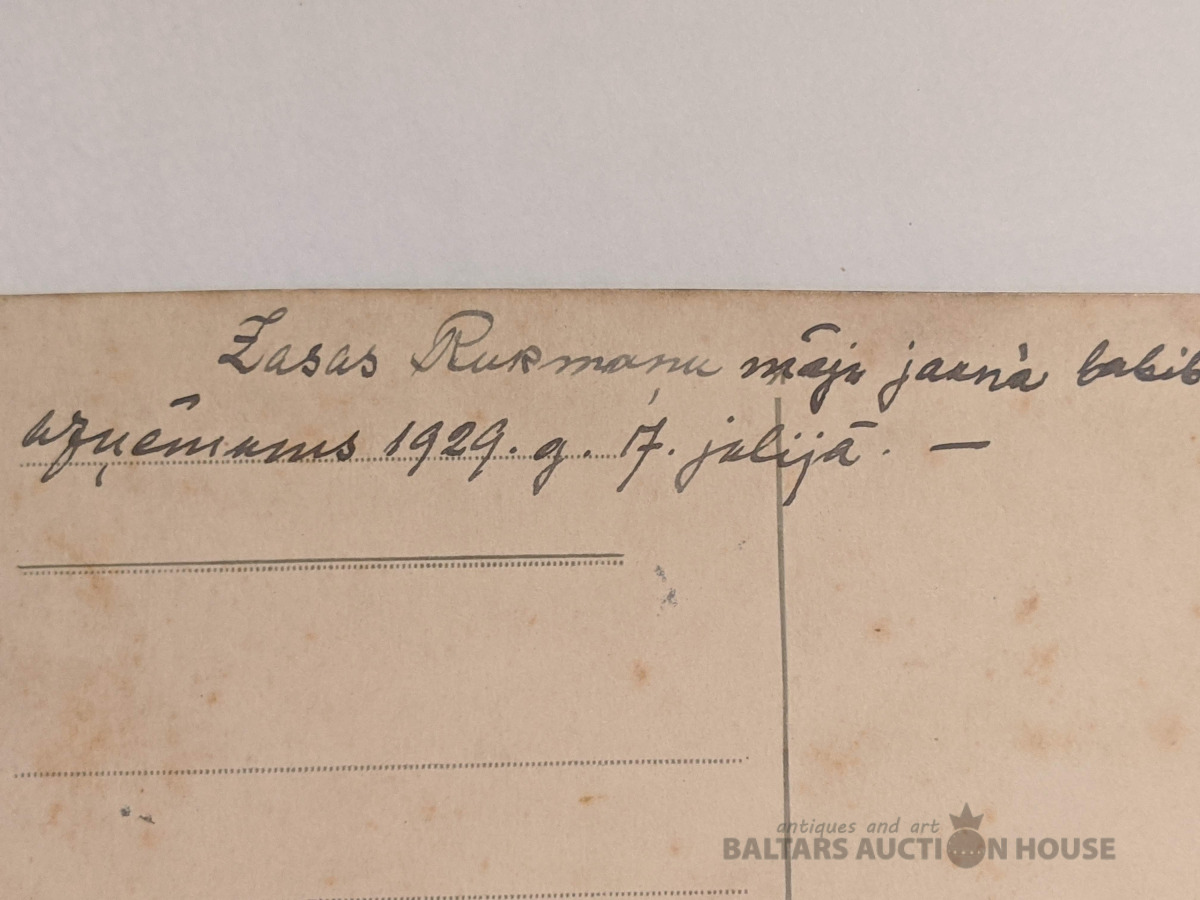 Zasas Rukmaņu māju jaunā labib
uzņēmums 1929. g. 17. jūlijā. —
antiques and art
BALTARS AUCTION HOUSE